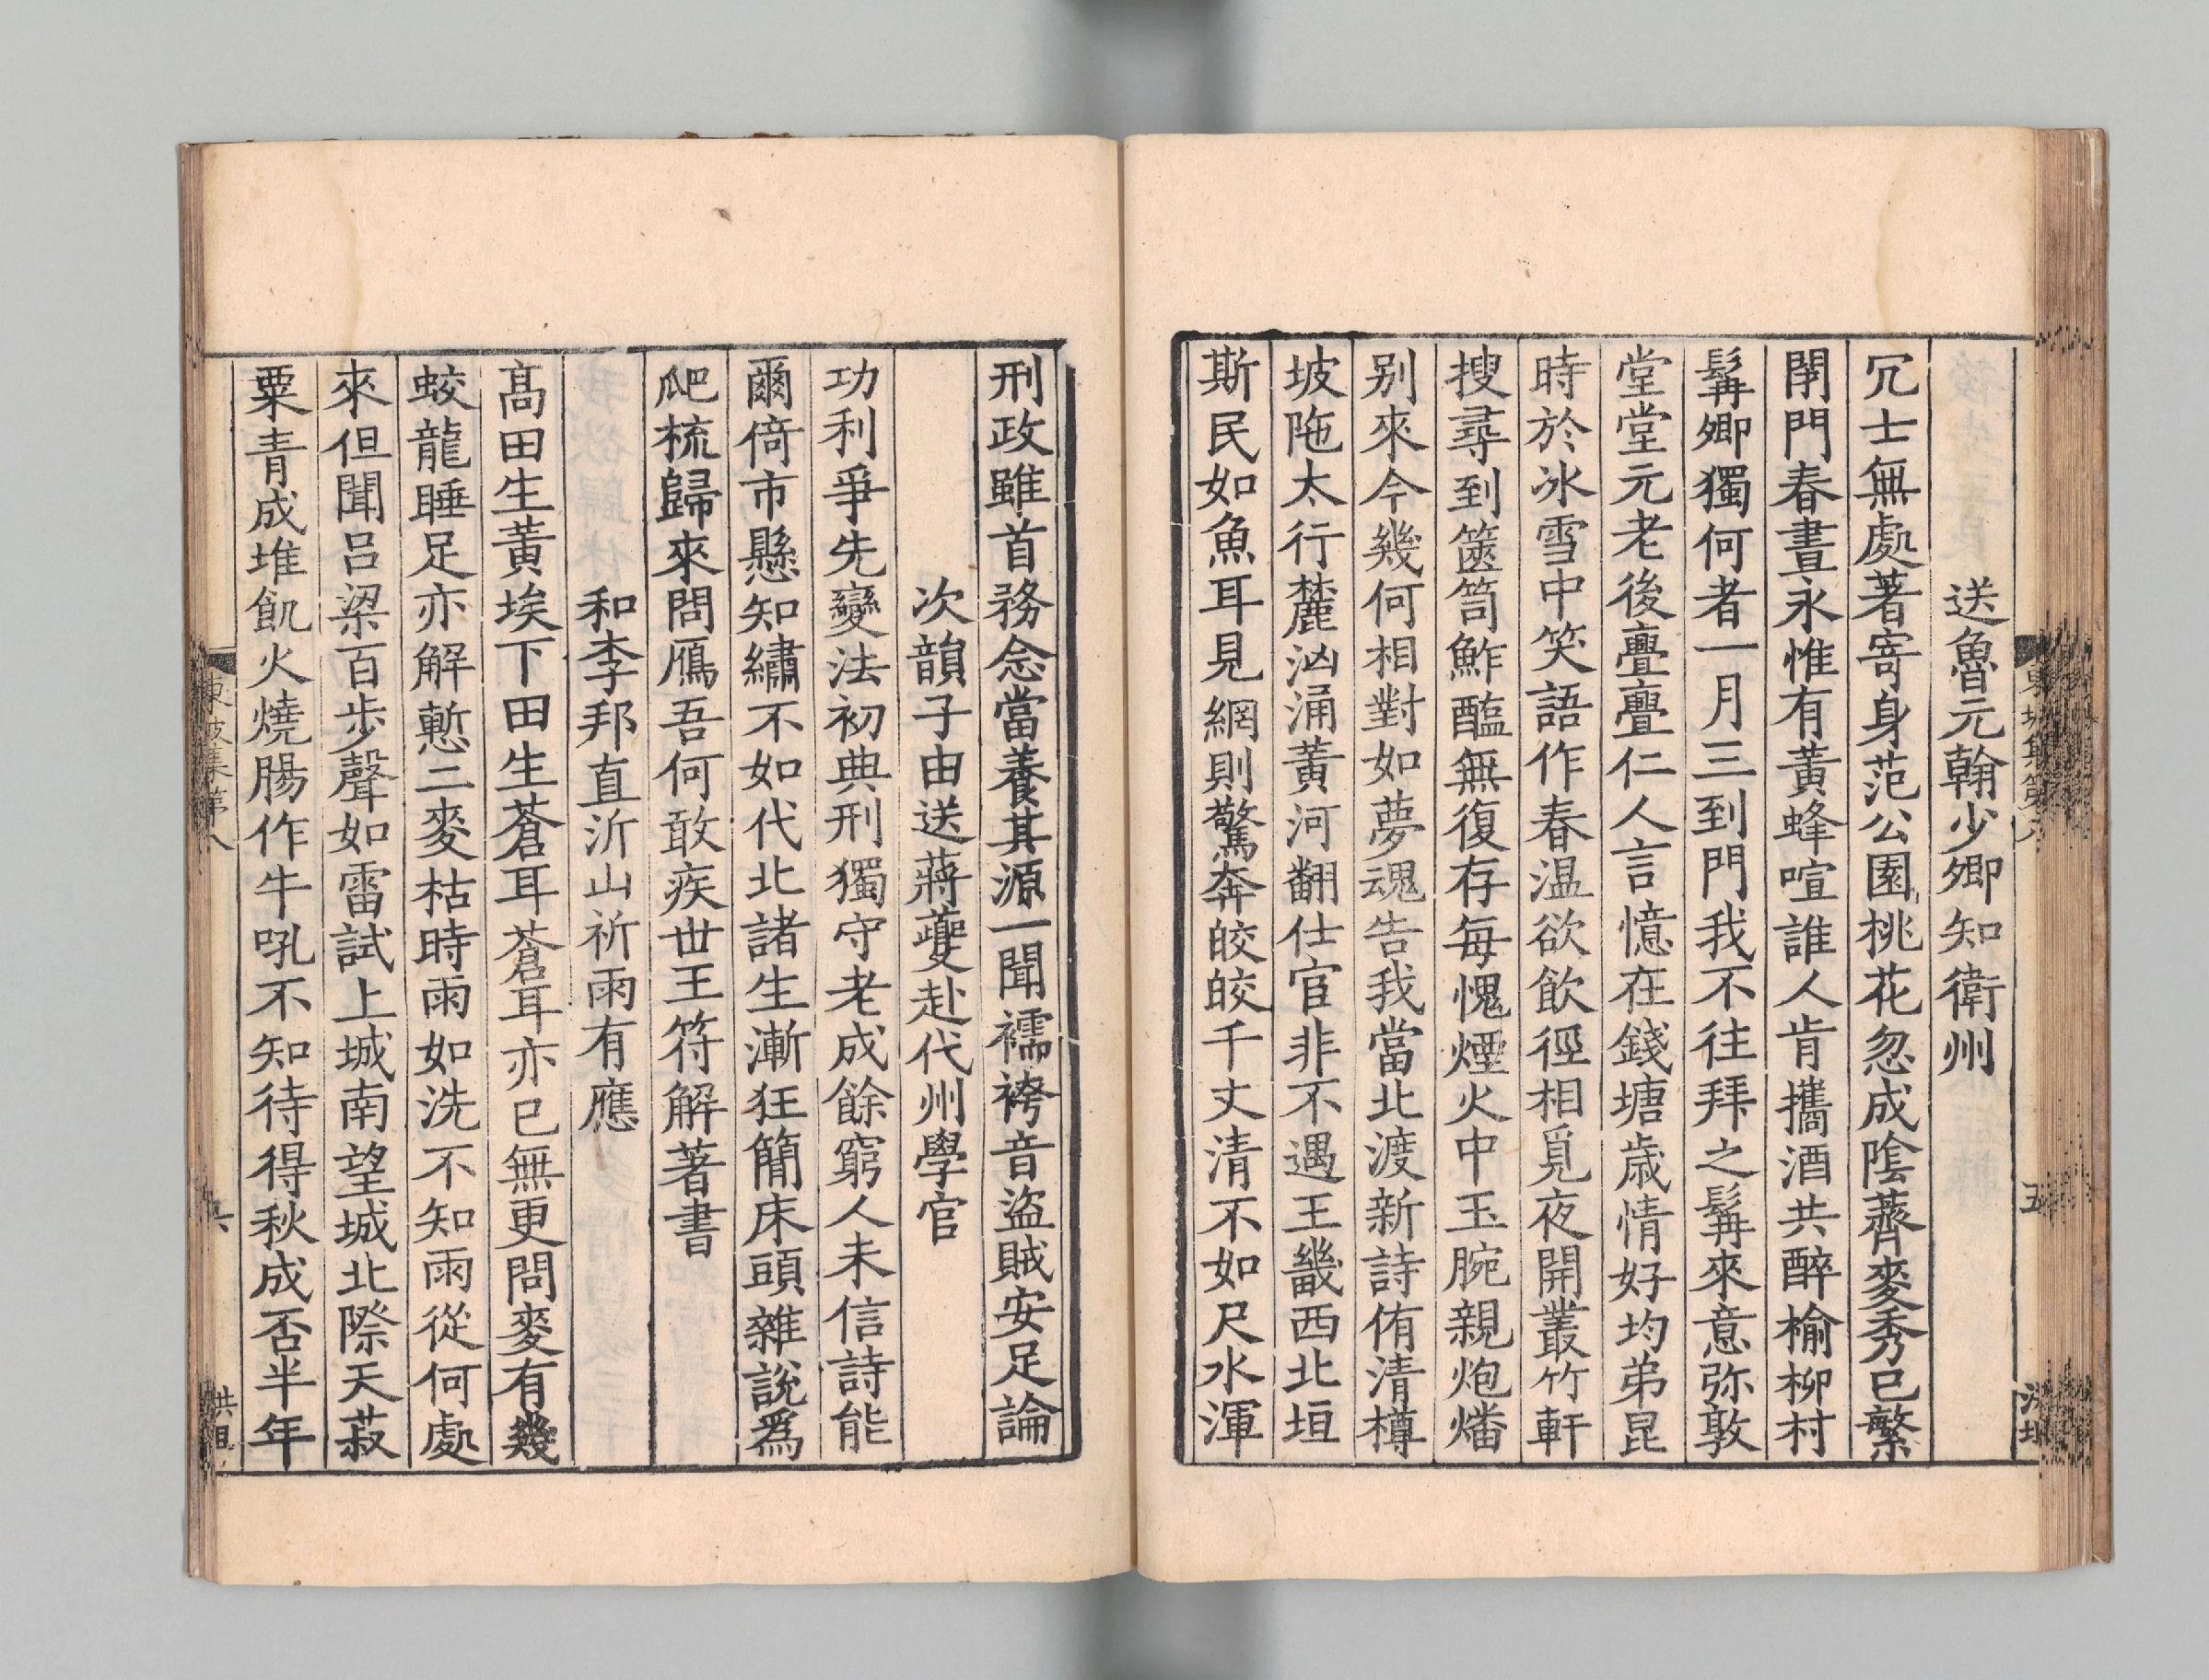 送魯元翰少卿知衛州
冗士無處著寄身范公園桃花忽成陰薺麥秀已繁
閉門春晝永惟有黃蜂喧誰人肯攜酒共醉榆柳村
髯卿獨何者一月三到門我不往拜之髯來意弥敦
堂堂元老後亹亹仁人言憶在錢塘歲情好均弟昆
時於冰雪中笑語作春温欲飲徑相覓夜開叢竹軒
搜尋到篋笥鮓醢無復存每愧煙火中玉腕親炮燔
别來今幾何相對如夢魂告我當北渡新詩侑清樽
坡陁太行麓洶涌黃河翻仕宦非不遇王畿西北垣
斯民如魚耳見網則驚奔皎皎千丈清不如尺水渾
東坡集第八
五
刑政雖首務念當養其源一聞襦袴音盜賊安足論
次韻子由送蔣夔赴代州學官
功利爭先變法初典刑獨守老成餘窮人未信詩能
爾倚市懸知繡不如代北諸生漸狂簡床頭雜說爲
爬梳歸來問鴈吾何敢疾世王符解著書
和李邦直沂山祈雨有應
髙田生黃埃下田生蒼耳蒼耳亦已無更問麥有幾
蛟龍睡足亦解慙二麥枯時雨如洗不知雨從何處
來但聞吕梁百步聲如雷試上城南望城北際天菽
粟青成堆飢火燒腸作牛吼不知待得秋成否半年
東坡集第八
六
洪坦